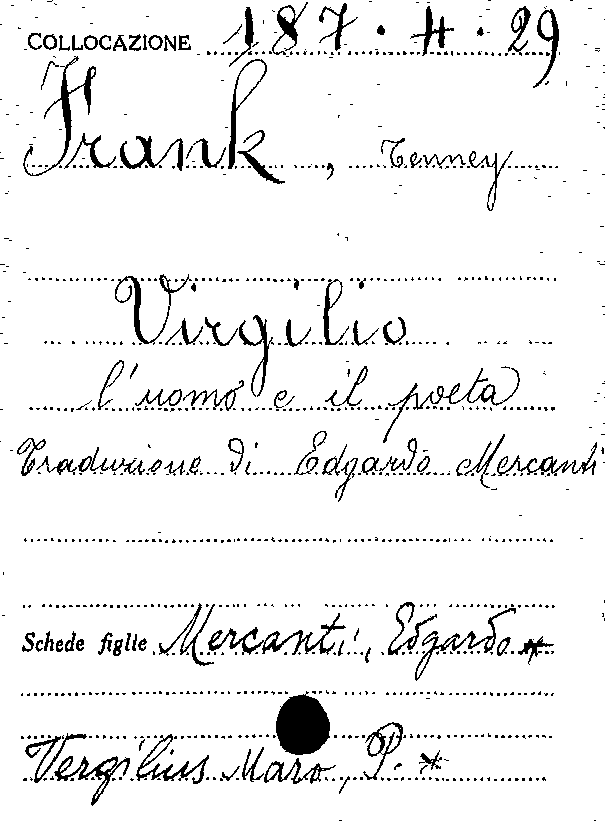 COLLOCAZIONE 187.4.29
Frank, Tenney
Virgilio
l'uomo e il poeta
Traduzione di Edgardo Mercanti
Schede figlie Mercanti, Edgardo *
Vergilius Maro, P. *